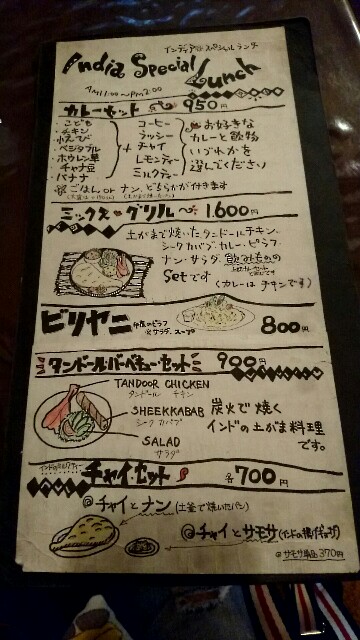 インディア スペシャル ランチ
India Special Lunch
AM11:00〜PM2:00
カレーセット 950円
・こども
・チキン
・小えび
・ベジタブル
・ホウレン草
・チャナ豆
・バナナ
+
コーヒー
ラッシー
チャイ
レモンティー
ミルクティー
お好きな
カレーと飲物
いづれかを
選んでください
ごはん or ナン、どちらかが付きます
ミックス グリル〜 1.600円
土がまで焼いたタンドールチキン、
シークカバブ、カレー、ピラフ、
ナン・サラダ、飲みものの
Setです
(カレーは チキンです)
ビリヤニ サラダ、スープ 800円
タンドールバーベキューセット 900円
TANDOOR CHICKEN
タンドール チキン
SHEEKKABAB
シーク カバブ
SALAD
サラダ
炭火で焼く
インドの土がま料理
です。
チャイセット 各700円
@チャイとナン(土釜で焼いたパン)
@チャイとサモサ(インドの揚げギョウザ)
@サモサ単品370円